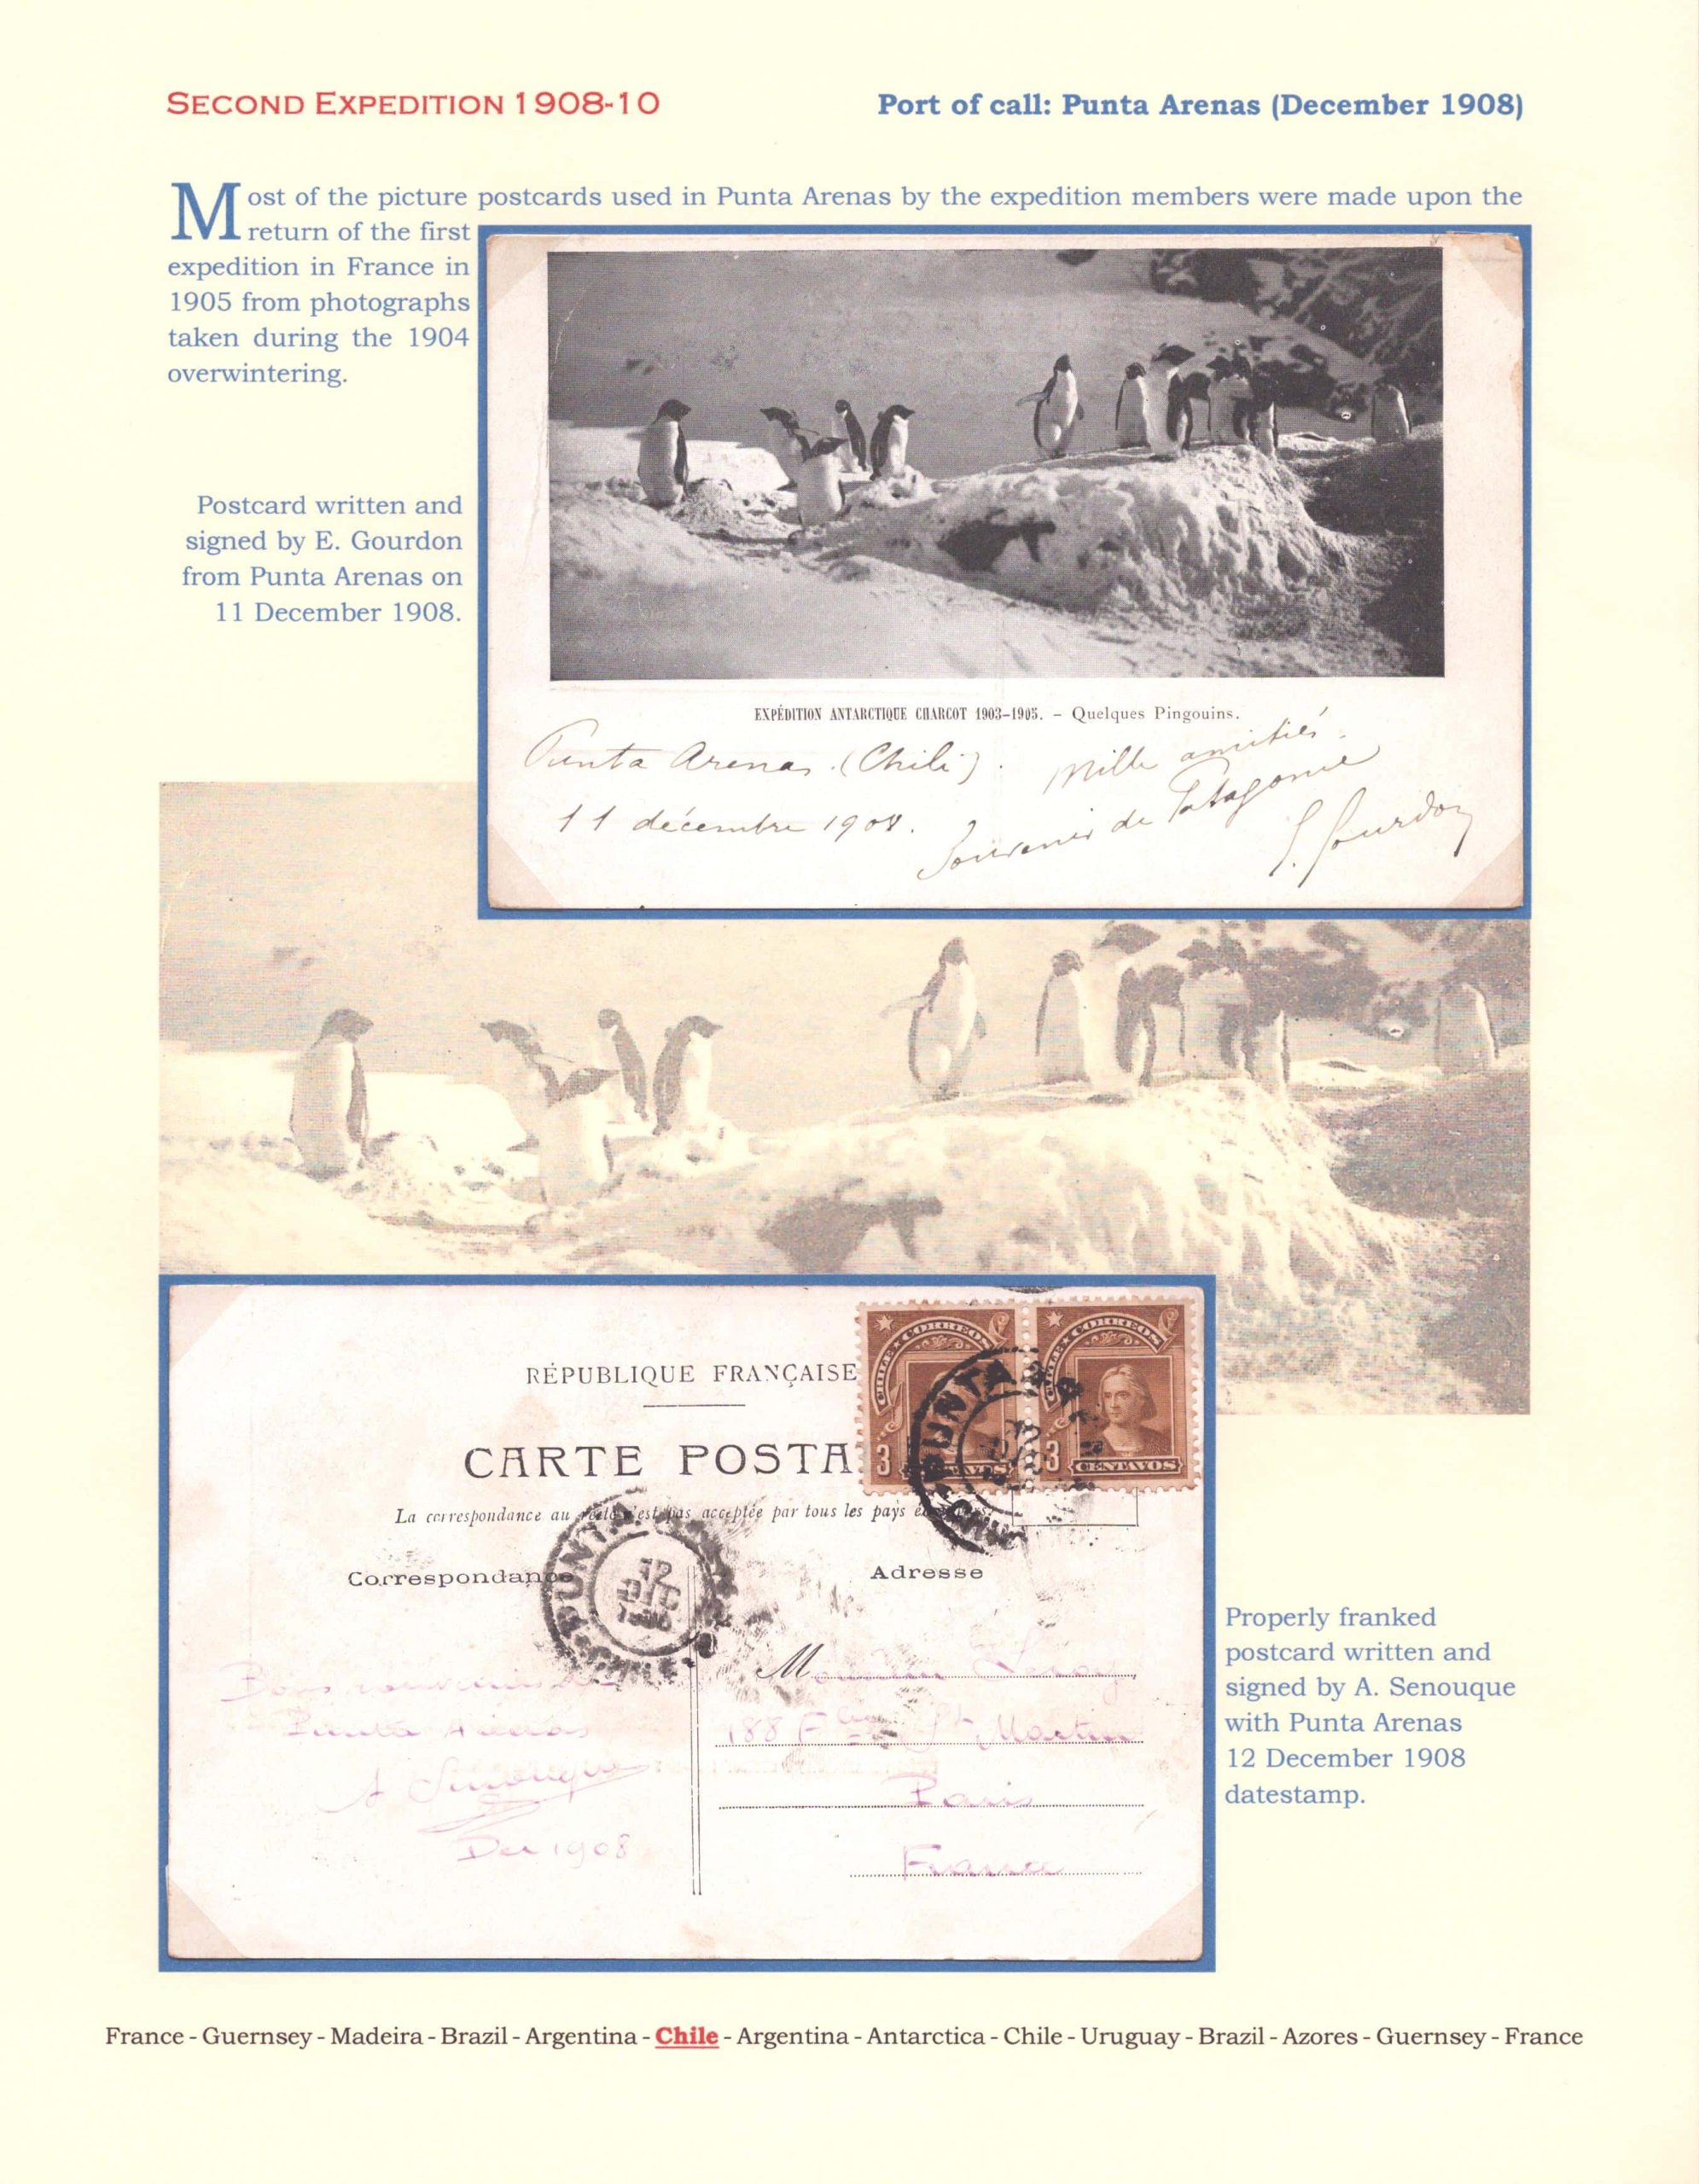 SECOND EXPEDITION 1908-10
Port of call: Punta Arenas (December 1908)
Most of the picture postcards used in Punta Arenas by the expedition members were made upon the
return of the first
expedition in France in
1905 from photographs
taken during the 1904
overwintering.
Postcard written and
signed by E. Gourdon
from Punta Arenas on
11 December 1908.
EXPÉDITION ANTARCTIQUE CHARCOT 1903-1905. - Quelques Pingouins.
Punta Arenas. (Chili).
11 décembre 1908.
Mille amitiés.
Souvenir de Patagonie
E. Gourdon
RÉPUBLIQUE FRANÇAISE
CARTE POSTA
La correspondance au recto n'est pas acceptée par tous les pays
Correspondance
Adresse
CHILE CORREOS
3 CENTAVOS
CHILE CORREOS
3 CENTAVOS
PUNTA
PUNTA
12
DIC
Bons souvenirs de
Punta Arenas
A Senouque
Dec 1908
Monsieur Leroy
188 Fbg St Martin
Paris
France
Properly franked
postcard written and
signed by A. Senouque
with Punta Arenas
12 December 1908
datestamp.
France - Guernsey - Madeira - Brazil - Argentina - Chile - Argentina - Antarctica - Chile - Uruguay - Brazil - Azores - Guernsey - France